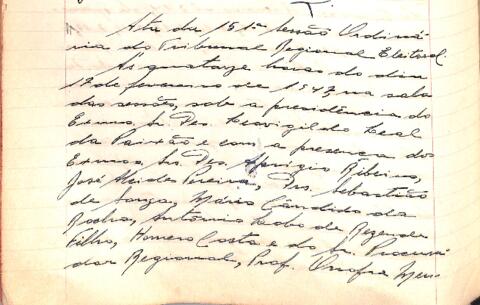 Ata da 151ª Sessão Ordiná-
ria do Tribunal Regional Eleitoral.
Às quatorze horas do dia
12 de fevereiro de 1947 na sala
das sessão, sob a presidência do
Exmo. Sr. Des. Leovigildo Leal
da Paixão e com a presença dos
Exmos. Srs. Des. Aprigio Ribeiro,
José Alcides Pereira, Drs. Sebastião
de Souza, Mário Cândido da
Rocha, Antônio Lobo de Rezende
Filho, Homero Costa e do Sr. Procura-
dor Regional, Prof. Onofre Men-